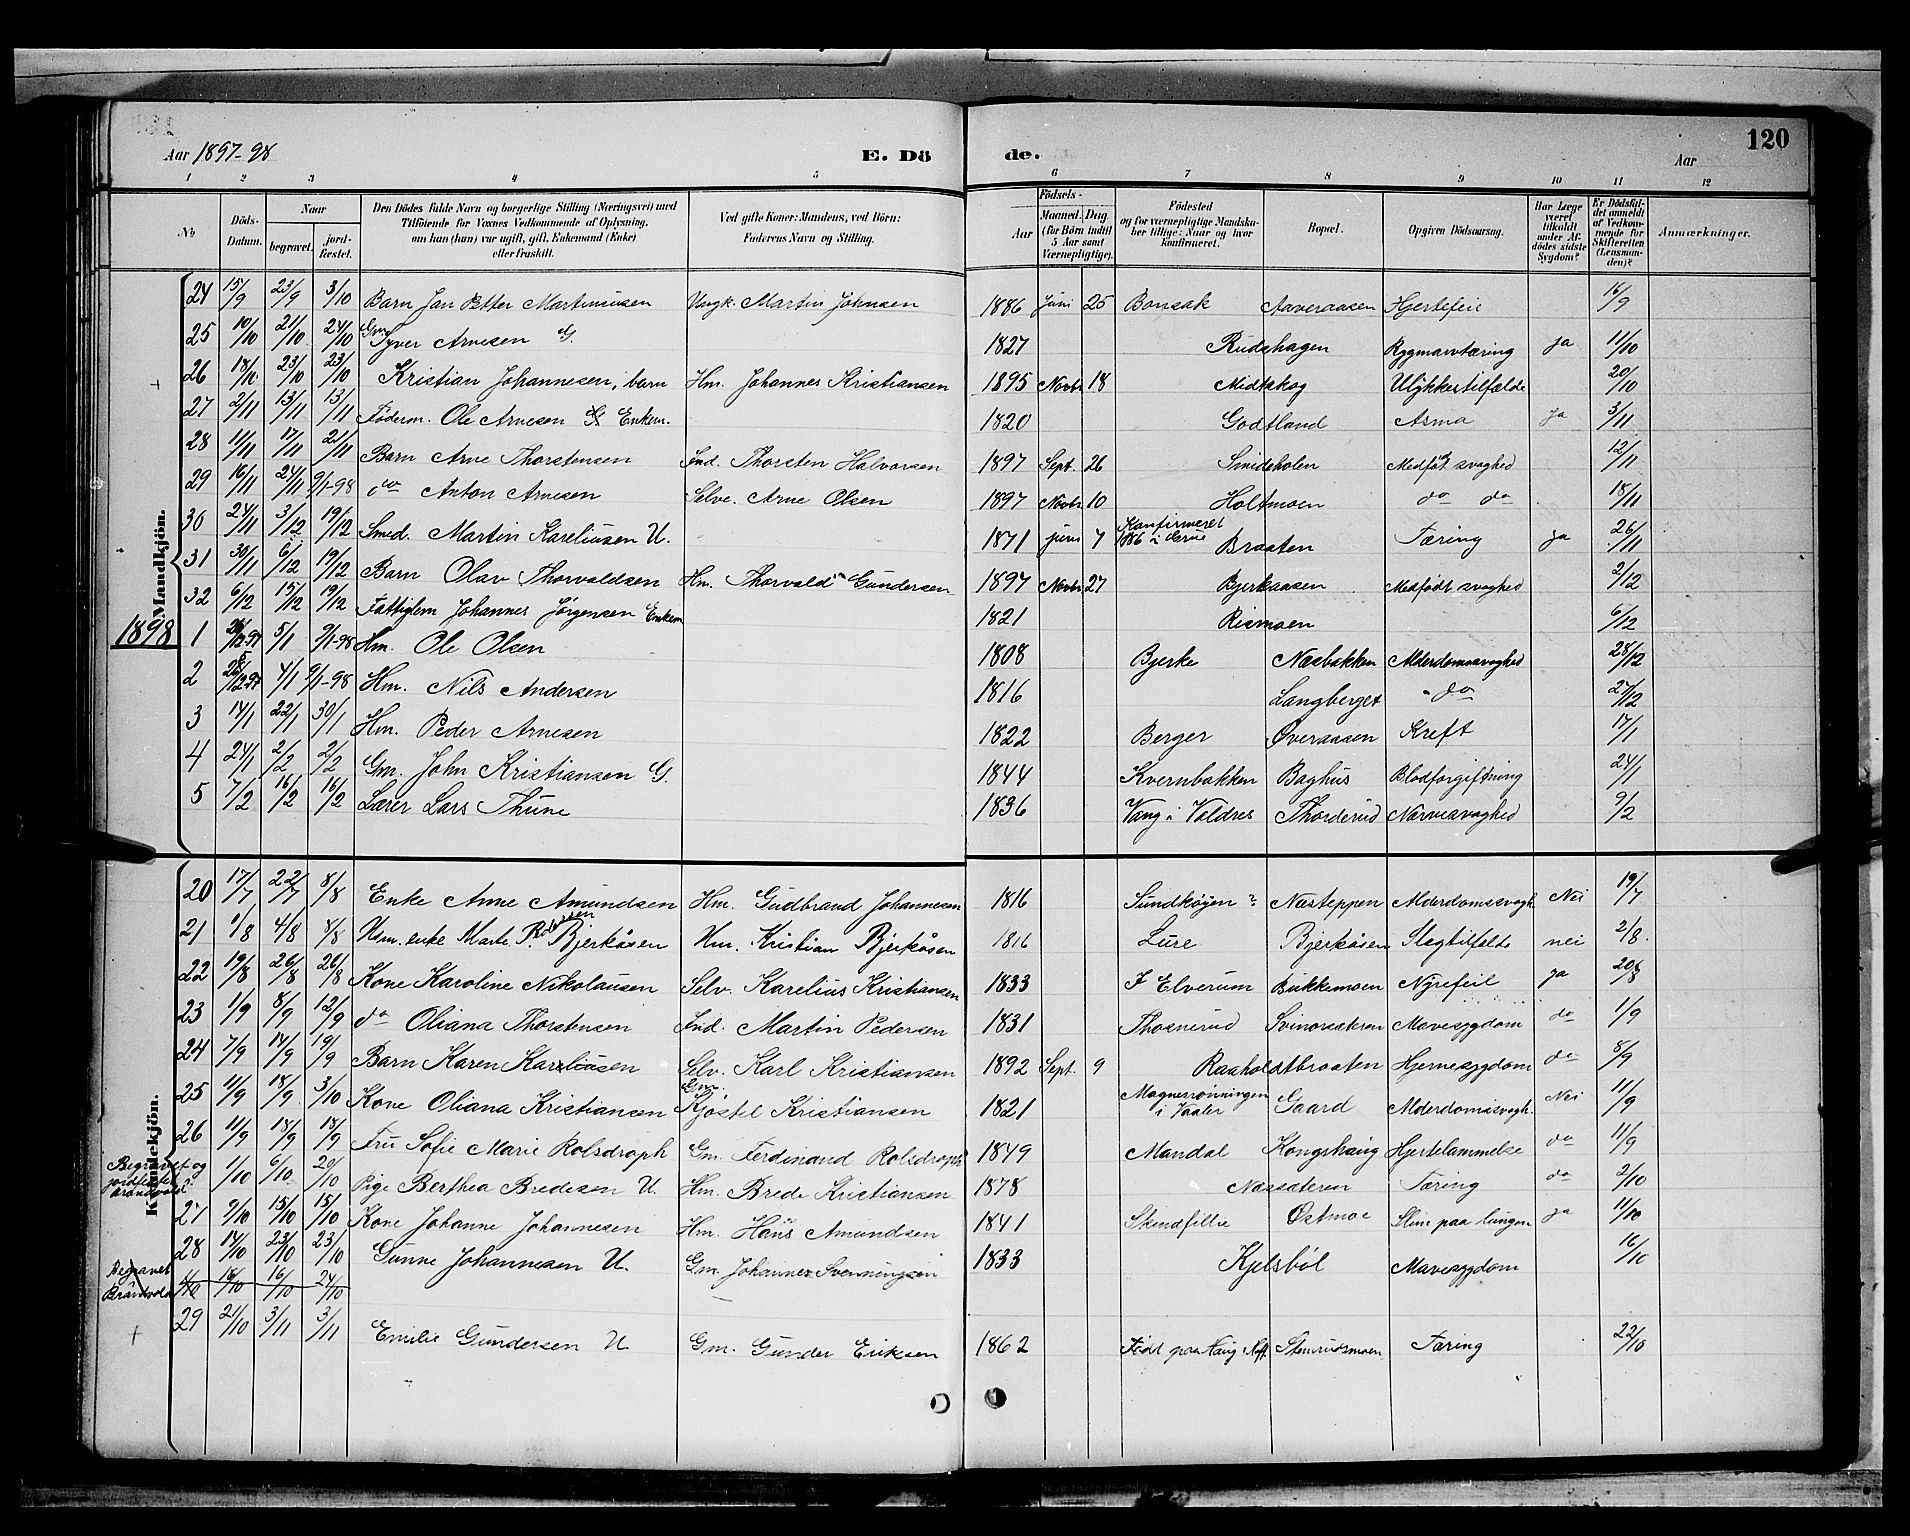 Aar 1897-98 E. Dö de. Aar 120
1 2 3 4 5 6 7 8 9 10 11 12
No Döds-Datum. Naar begravet. jord-fæstet. Den Dödes fulde Navn og borgerlige Stilling (Næringsvei) med Tilföiende for Voxnes Vedkommende af Oplysning, om han (hun) var ugift, gift, Enkemand (Enke) eller fraskilt. Ved gifte Koner: Mandens, ved Börn: Faderens Navn og Stilling. Födsels- Aar Maaned. Dag. (for Börn indtil 5 Aar samt Værnepligtige). Födested og for værnepligtige Mandska-ber tillige: Naar og hvor konfirmeret. Bopæl. Opgiven Dödsaarsag. Har Læge været tilkaldt under Af-dödes sidste Sygdom? Er Dödsfal-det anmeldt af Vedkom-mende for Skifteretten (Lensman-den)? Anmærkninger.
Mandkjön.
24 15/9 23/9 3/10 Barn Jan Petter Martinusen Ungk. Martin Johnsen 1886 Juni 25 Bonsak Aaveraasen Hjertefeil 16/9
25 10/10 21/10 24/10 Gm. Syver Arnesen G. 1827 Rudshagen Rygmarvtæring ja 11/10
26 18/10 23/10 23/10 Kristian Johannesen, barn Hm. Johannes Kristiansen 1895 Novbr 18 Midtskog Ulykkestilfælde 20/10
27 2/11 13/11 13/11 Föderm. Ole Arnesen Enkem. 1820 Godtland Asma Ja 3/11
28 11/11 17/11 21/11 Barn Arne Thorstensen Ind. Thorsten Halvorsen 1897 Sept. 26 Smidsholen Medfödt svaghed 12/11
29 16/11 24/11 9/1-98 do Anton Arnesen Selve. Arne Olsen 1897 Novbr 10 Holtmoen do do 18/11
30 24/11 3/12 19/12 Smed. Martin Kareliusen U. 1871 juni 7 Konfirmeret 1886 i Grue Braaten Tæring ja 26/11
31 30/11 6/12 19/12 Barn Olav Thorvaldsen Hm. Thorvald Gundersen 1897 Novbr 27 Bjerkaasen Medfödt svaghed 2/12
32 6/12 15/12 19/12 Fattiglem Johannes Jörgensen Enkem 1821 Rismoen 6/12
1898 1 5/1 9/1-98 Hm. Ole Olsen 1808 Bjerke Næsbakken Alderdomssvaghed 28/12
2 4/1 9/1-98 Hm. Nils Andersen 1816 Langberget do 27/12
3 14/1 22/1 30/1 Hm. Peder Arnesen 1822 Berger Överaasen Kreft 17/1
4 24/1 2/2 2/2 Gm. John Kristiansen G. 1844 Kvernbakken Baghus Blodforgiftning 24/1
5 7/2 16/2 16/2 Lærer Lars Thune 1836 Vang i Valdres Thorderud Nervesvaghed 9/2
Kvindekjön.
20 17/7 22/7 8/8 Enke Anne Amundsen Hm. Gudbrand Johannesen 1816 Sundköien ? Næsteppen Alderdomssvagh. Nei 19/7
21 1/8 4/8 4/8 Hsm. enke Marte P. Bjerkåsen Hm. Kristian Bjerkåsen 1816 Lure Bjerkåsen Slagtilfelde nei 2/8.
22 19/8 26/8 26/8 Kone Karoline Nikolausen Selv. Karelius Kristiansen 1833 I Elverum Bukkemoen Nyrefeil ja 20/8
23 1/9 8/9 12/9 do Oliana Thorstensen Ind. Martin Pedersen 1831 Thosnerud Svinorsæteren Mavesygdom do 1/9
24 7/9 14/9 19/9 Barn Karen Karlsen Selv. Karl Kristiansen 1892 Sept. 9 Raaholdtbraaten Hjernesygdom do 8/9
25 11/9 18/9 3/10 Kone Oliana Kristiansen Gm. Kjöstel Kristiansen 1821 Magnesrönningen i Vaaler Gaard Alderdomssvagh. Nei 11/9
26 11/9 18/9 18/9 Fru Sofie Marie Rolsdroph Gm. Ferdinand Rolsdroph 1849 Mandal Kongshaug Hjertelammelse do 11/9
Begravet og jordfestet Brandvold 1/10 6/10 20/10 Pige Berthea Bredesen U. Hm. Brede Kristiansen 1878 Næssæteren Tæring do 2/10
27 9/10 15/10 15/10 Kone Johanne Johannesen Hm. Hans Amundsen 1841 Skindfillie Ostmoe Slim paa lungen ja 11/10
28 14/10 23/10 23/10 Gunne Johannesen U. Gm. Johannes Svenningsen 1833 Kjelsböl Mavesygdom 16/10
Begravet Brandvold 16/10 16/10 24/10
29 21/10 3/11 3/11 Emilie Gundersen U. Gm. Gunder Eriksen 1862 Födt paa Haug i Hoff Stemsrudsmoen Tæring 22/10